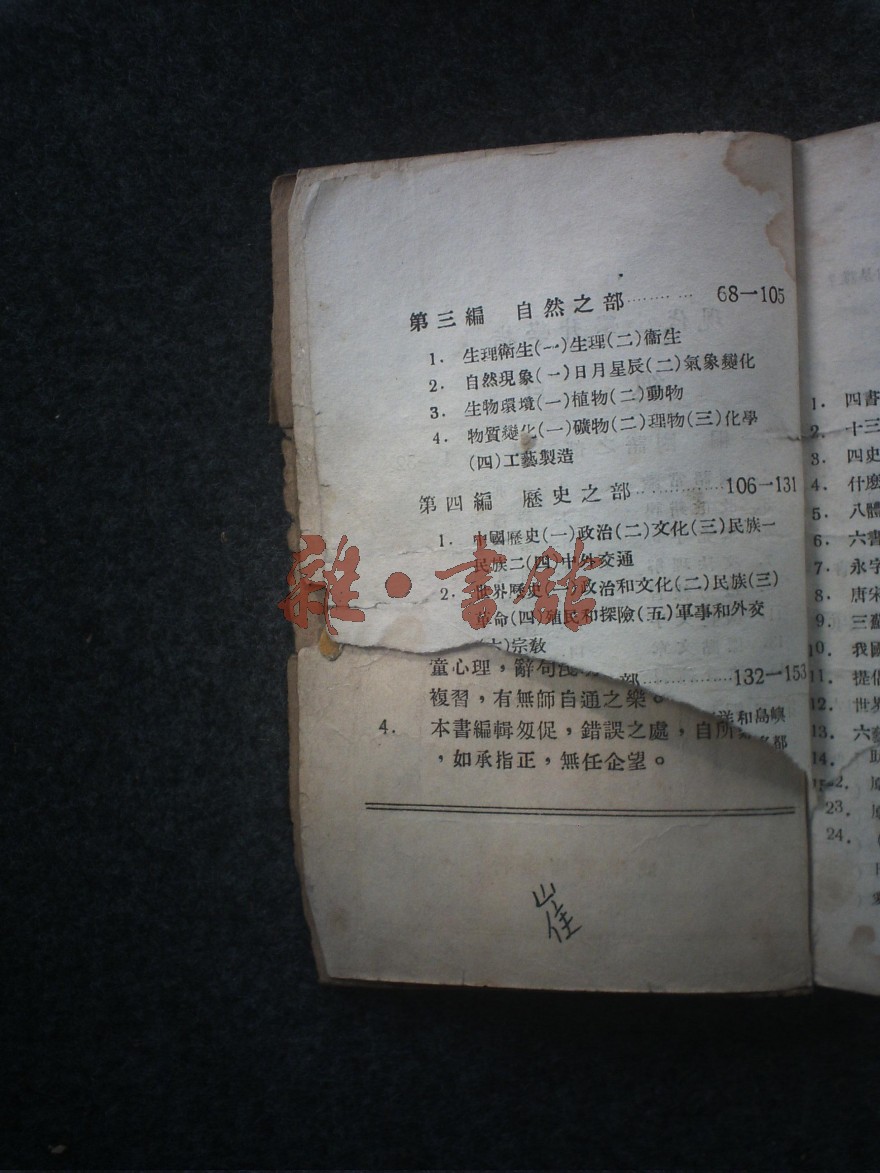 第三編 自然之部……… 68—105
1. 生理衛生(一)生理(二)衞生
2. 自然現象(一)日月星辰(二)氣象變化
3. 生物環境(一)植物(二)動物
4. 物質變化(一)礦物(二)理物(三)化學
(四)工藝製造
第四編 歷史之部……………106—131
1. 中國歷史(一)政治(二)文化(三)民族一
民族二(四)中外交通
2. 世界歷史(一)政治和文化(二)民族(三)
革命(四)殖民和探險(五)軍事和外交
(六)宗教
部………………132—153
洋和島嶼
名都
童心理，辭句
複習，有無師自通之樂。
4. 本書編輯匆促，錯誤之處，自所
，如承指正，無任企望。
崔
雜·書館
1. 四書
2. 十三
3. 四史
4. 什麼
5. 八體
6. 六書
7. 永字
8. 唐宋
9. 三蘇
10. 我國
11. 提倡
12. 世界
13. 六藝
14.
15.
23.
24.